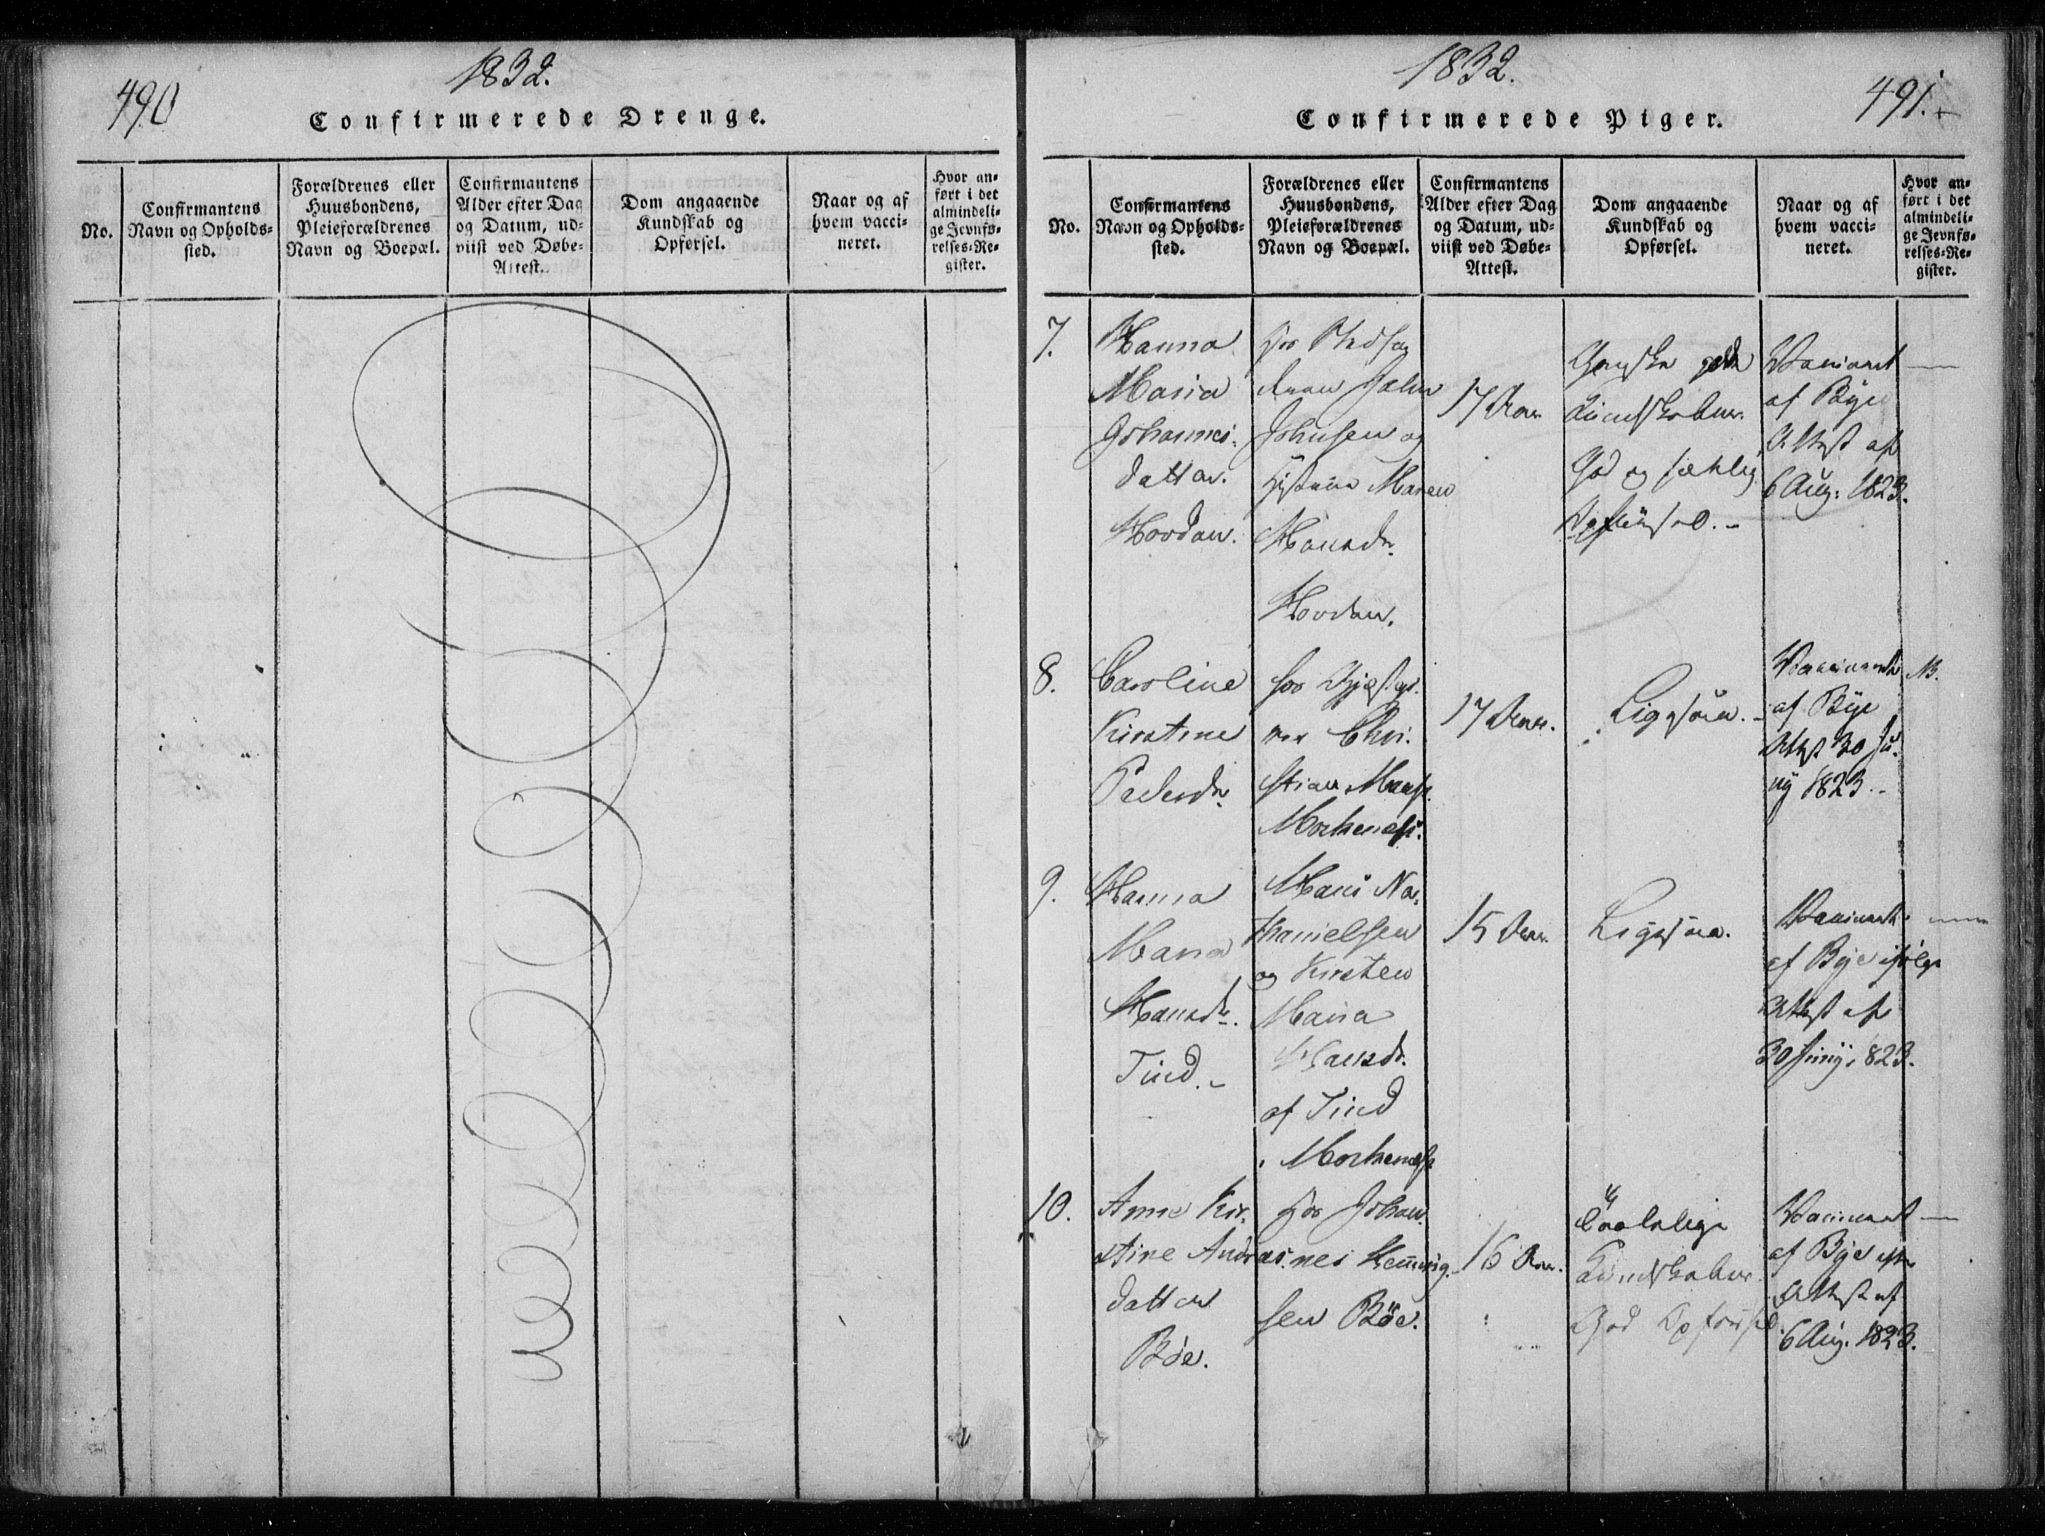 490
1832.
Confirmerede Drenge.
No.
Confirmantens
Navn og Opholds-
sted.
Forældrenes eller
Huusbondens,
Pleieforældrenes
Navn og Boepæl.
Confirmantens
Alder efter Dag
og Datum, ud-
viist ved Døbe-
Attest.
Dom angaaende
Kundskab og
Opførsel.
Naar og af
hvem vacci-
neret.
Hvor an-
ført i det
almindeli-
ge Jevnfø-
relses-Re-
gister.
1832.
491.
Confirmerede Piger.
No.
Confirmantens
Navn og Opholds-
sted.
Forældrenes eller
Huusbondens,
Pleieforældrenes
Navn og Boepæl.
Confirmantens
Alder efter Dag
og Datum, ud-
viist ved Døbe-
Attest.
Dom angaaende
Kundskab og
Opførsel.
Naar og af
hvem vacci-
neret.
Hvor an-
ført i det
almindeli-
ge Jevnfø-
relses-Re-
gister.
7.
Hanna
Maria
Johannes-
datter.
Hovden.
Johnsen og
Maren
Hansdr.
Hovden.
17
Kundskaber.
God og
Opførsel.
Vaccineret
af Bye
Attest af
6 Aug. 1823.
8.
Caroline
Kirstine
Pedersdr.
for
Chri-
stian
17
Ligesaa.
Vaccineret
af Bye
Attest 30 Ju-
ny 1823.
9.
Hanna
Maria
Hansdr.
Tind.
Hans Na-
thanielsen
og Kirsten
Maria
Hansdr.
af Tind
15
Ligesaa.
Vaccineret
af Bye ifølge
Attest af
30 Juny 823.
10.
Anne Kir-
stine Andreas-
datter
Bøe.
Johan-
nes Hemmig-
sen Bøe.
16
Kundskaber.
God Opførsel.
Vaccineret
af Bye efter
Attest af
6 Aug. 1823.